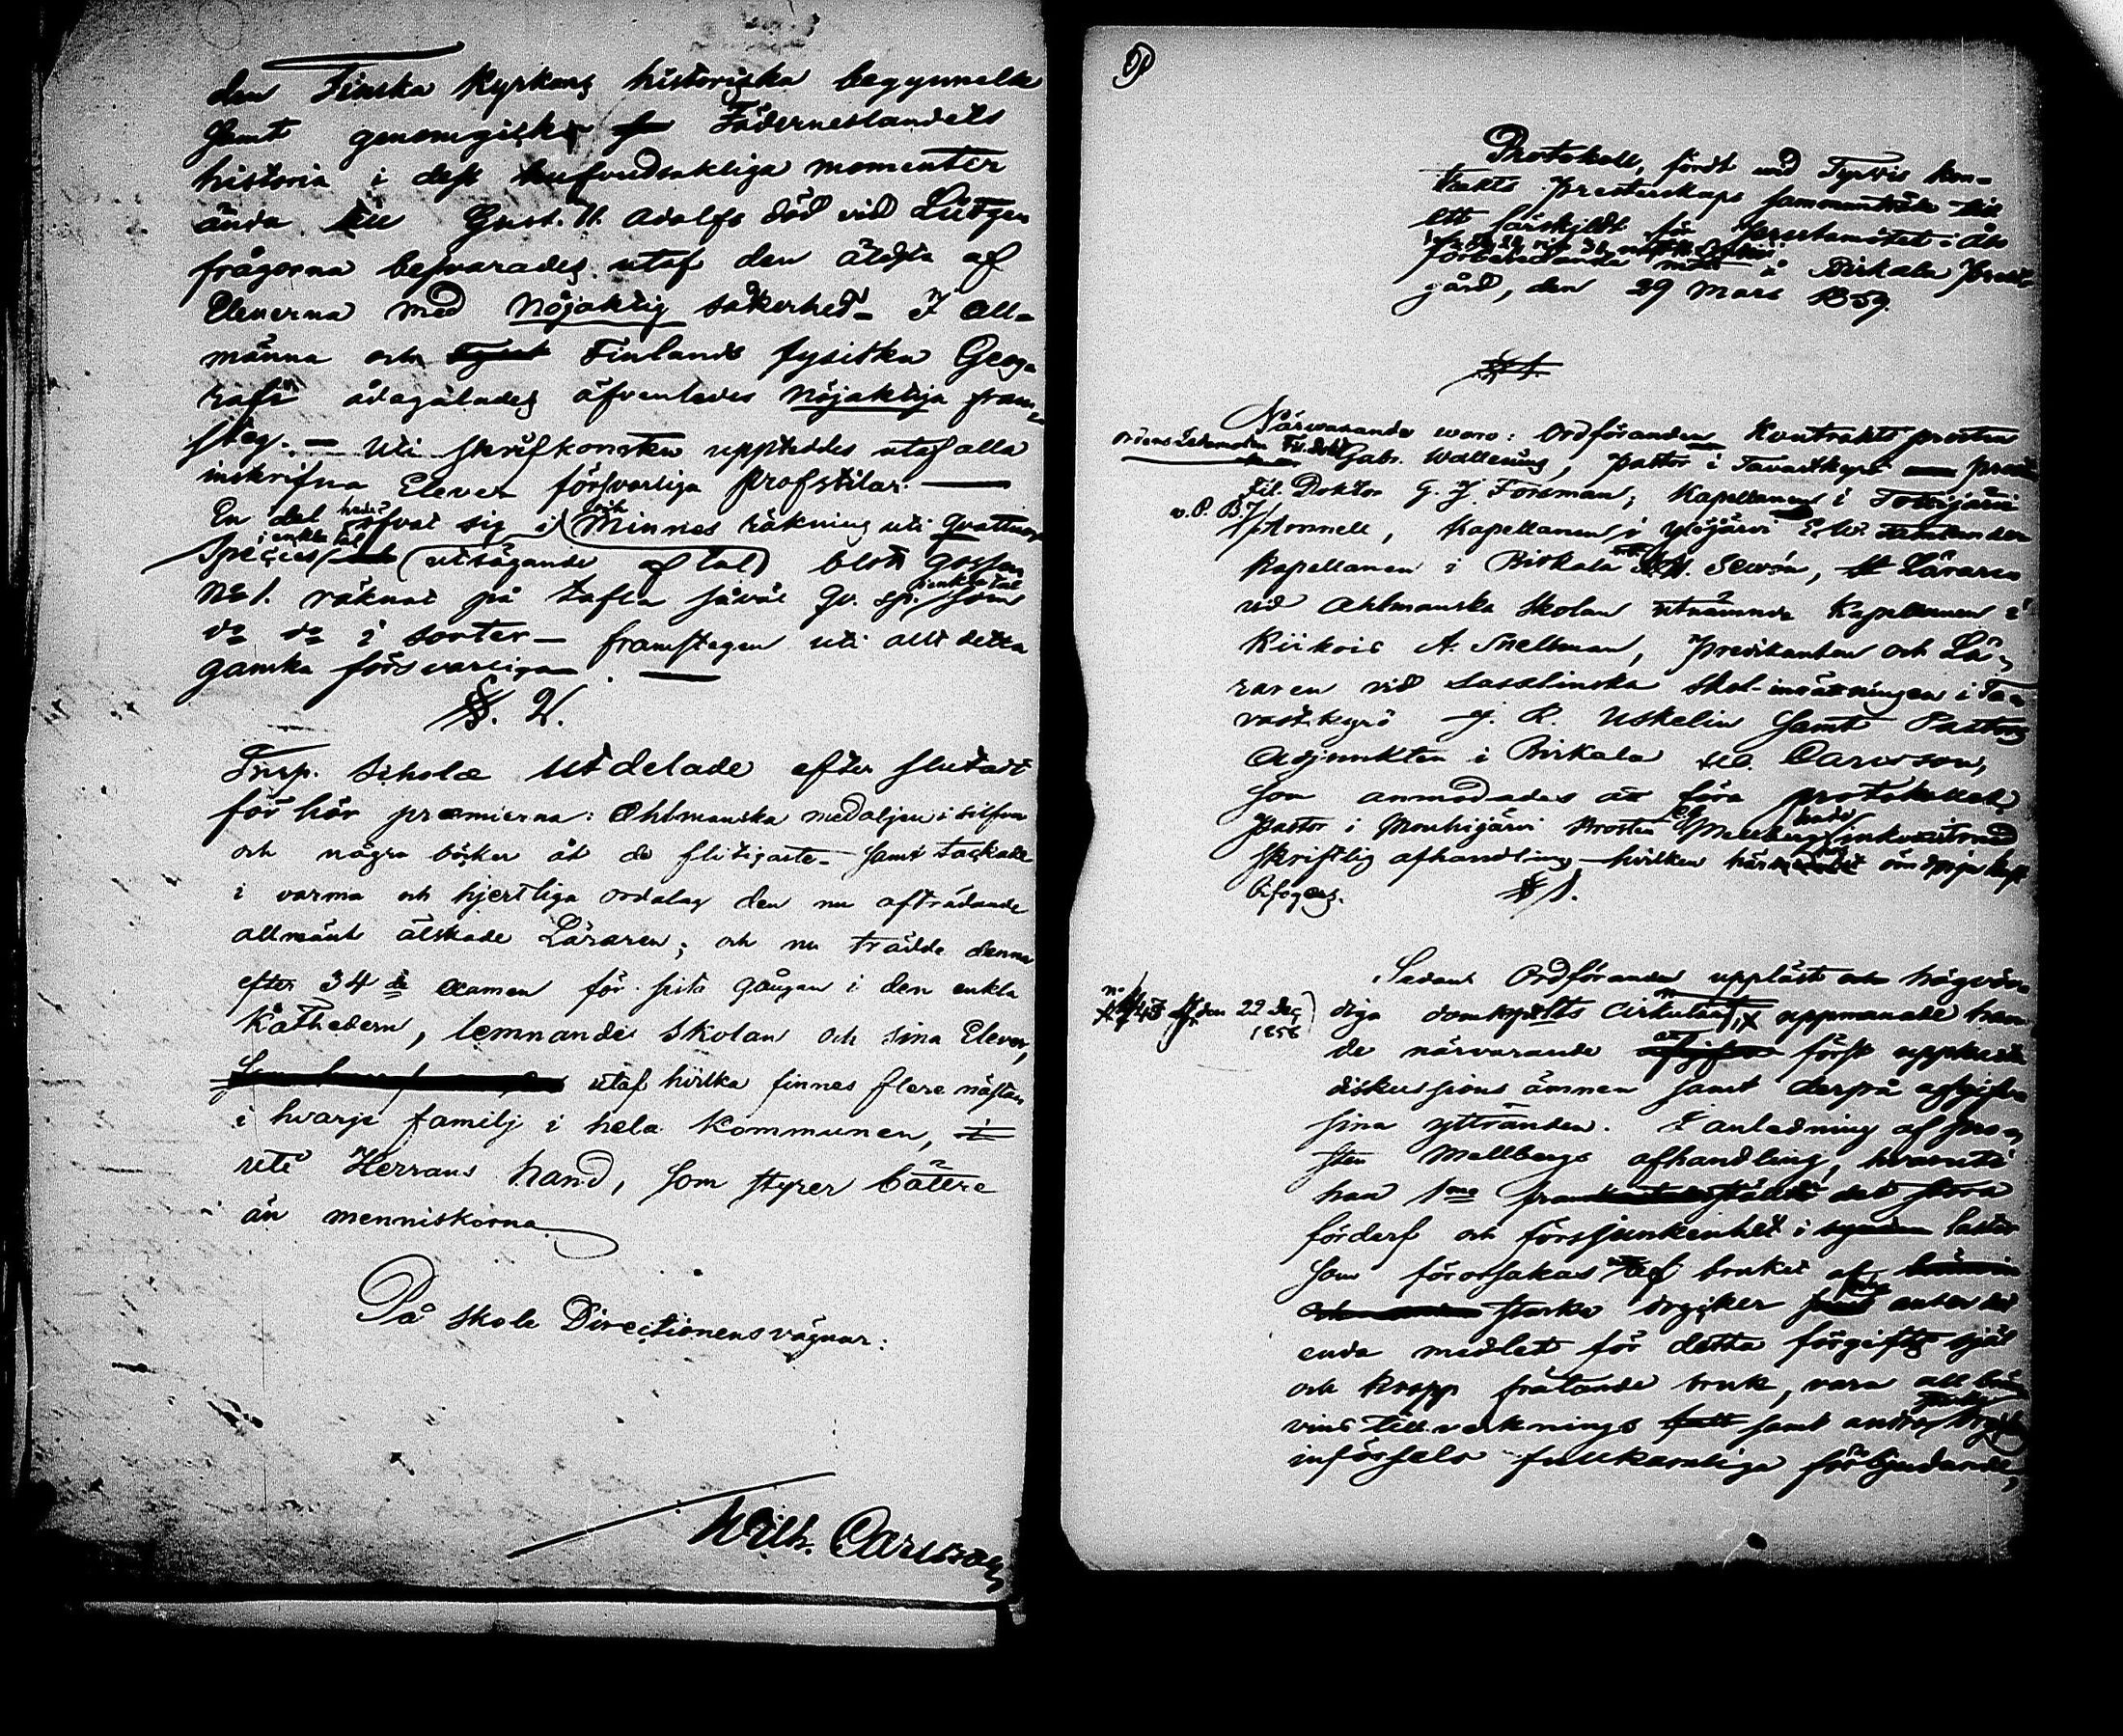 den Finska Kyrkans historiska begynnelse
samt genomgicks Fäderneslandets
historia i dess hufvudsakliga momenter
ända till Gust. II. Adolfs död vid Lützen
frågorna besvarades utaf den äldsta af
Eleverna med nöjaktig säkerhet – I all-
männa och Finlands fysiska Geog-
rafi ådagalades äfvenledes nöjaktiga fram-
steg. – Uti skrifkonsten uppteddes utaf alla
inskrifna Elever försvarliga profstilar. —
En del hade öfvat sig i och Minnes räkning uti quattuor
Species i enkla tal (utsägande af tal) blott gossen
No 1. räknat på taflan såväl qv. sp. i enkla tal som
do do i sorter – framstegen uti allt detta
ganska försvarliga. —
§. 2.
Insp. Scholæ utdelade efter slutadt
förhör præmierna: Ahlmanska medaljen i silfver
och några böcker åt de flitigaste – samt tackade
i varma och hjertliga ordalag den nu afträdande
allmänt älskade Läraren; och nu trädde denna
efter 34 de examen för sista gången i den enkla
Kathedern, lemnande skolan och sina Elever,
utaf hvilka finnes flere nästan
i hvarje familj i hela kommunen,
uti Herrans hand, som styrer bättre
än menniskorna
På skole Directionens vägnar:
Wilh. Carlsson
Protokoll, fördt vid Tyrvis kon-
trakts Presterskaps sammanträde till
ett särskildt för Prestamötet i Åbo
förberedande möte i Birkala Prest-
gård, den 29 Mars 1859.
§ 1.
Närvarande woro: Ordföranden Kontrakts prosten
Ordens Ledamoten Fil. Dokt Gabr. Wallenius, pastor i Tavastkyrö
Fil. Doktor G. J. Forsman, Kapellanen i Tottijärvi
v. P. Kapellanen i Ylöjärvi
Kapellanen i Birkala Sevón, Läraren
vid Ahlmanska skolan utnämnde Kapellanen i
Kiikois A. Snellman, Predikanten och Lä-
raren vid skol-inrättningen i Ta-
vastkyrö J. R. Uskelin samt Pastors
Adjunkten i Birkala W. Carlsson,
som anmodades att föra protokollet,
Pastor i Mouhijärvi Prosten Mellberg hade inkommit med
skriftlig afhandling – hvilken
bifogas. § 1.
Sedan Ordföranden uppläst högvör-
den 22 Dec 1858 diga domkapitlets Cirkulär, uppmanade han
de närvarande att först upptaga
diskussions ämnen samt derpå afgifva
sina yttranden. I anledning af pro-
sten Mellbergs afhandling, hvaruti
han 1mo det stora
förderf och försjunkenhet i laster
som förorsakas utaf bruket af
starka drycker anser det
enda medlet för detta förgiftg själ
och kropp frätande bruk, vara all brän-
vins tillverknings samt andra
införsels fullkomliga förbjudande,